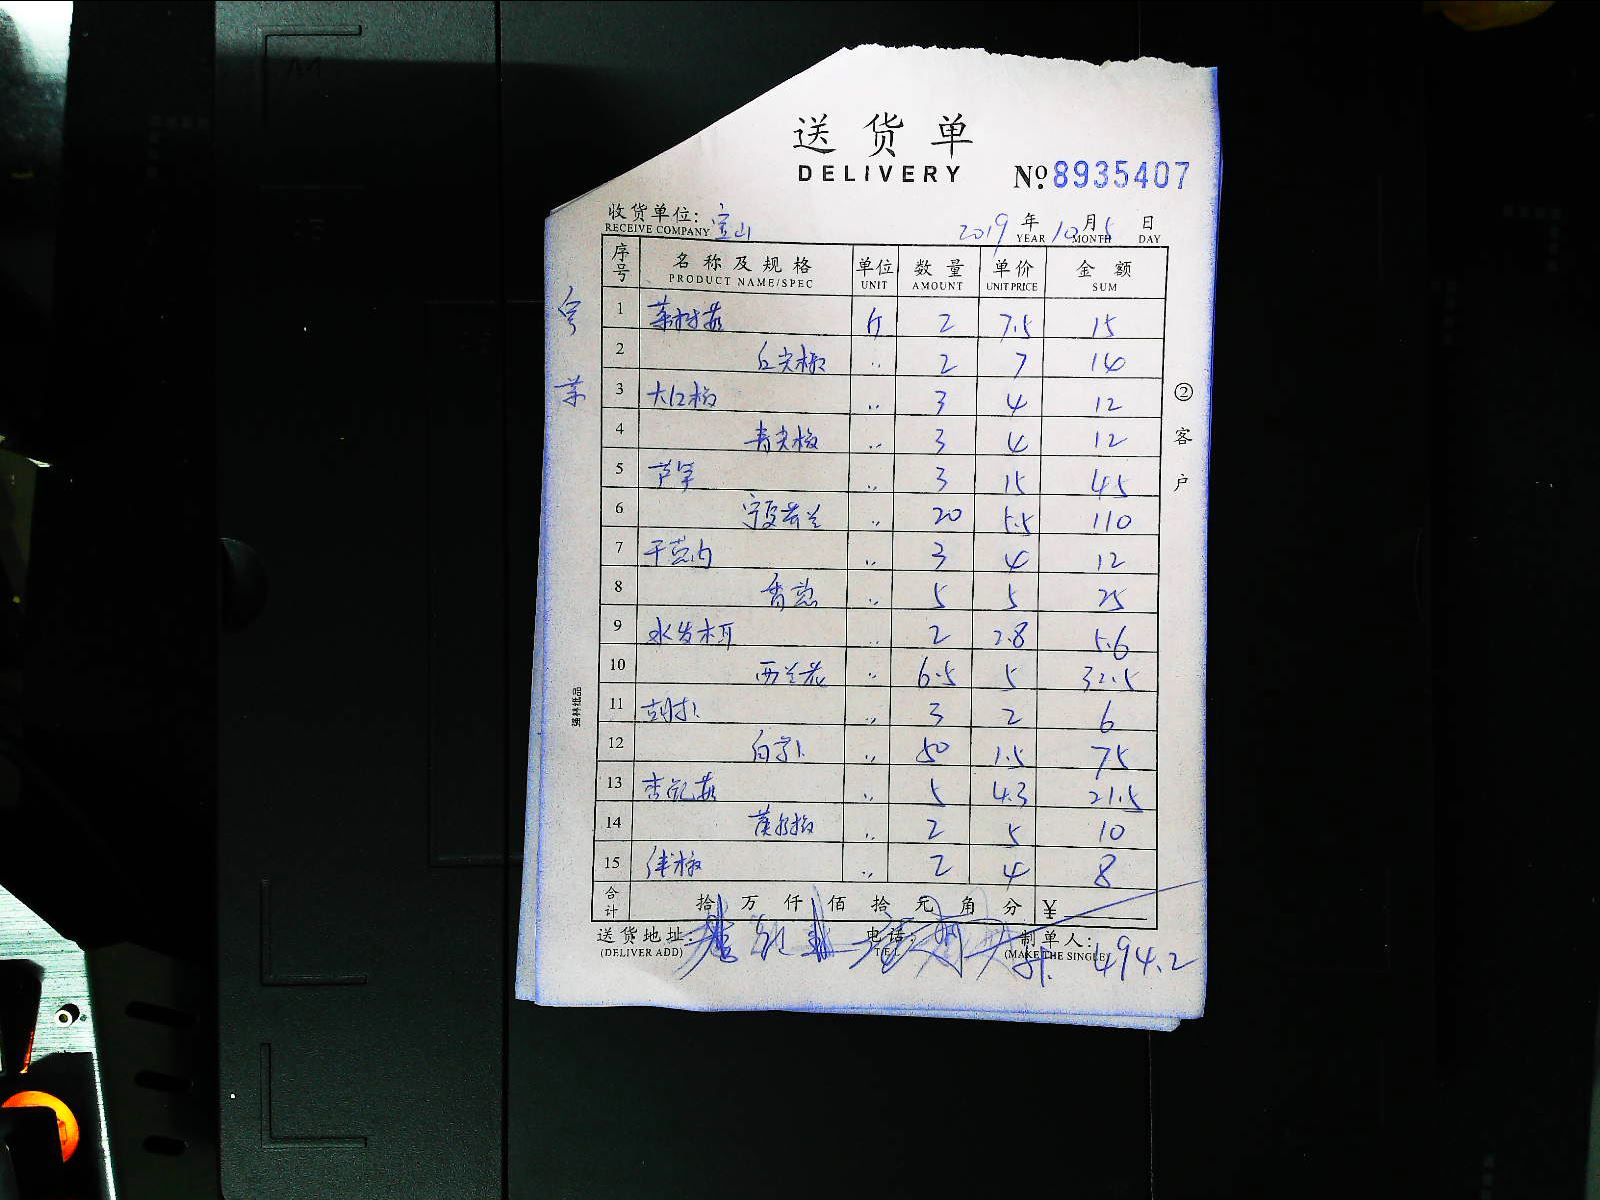 送货单
DELIVERY No. 8935407
收货单位: 宝山 2019 年 10 月 5 日
RECEIVE COMPANY YEAR MONTH DAY
序号 名称及规格 单位 数量 单价 金额
PRODUCT NAME/SPEC UNIT AMOUNT UNIT PRICE SUM
1 茶树菇 斤 2 7.5 15
2 红尖椒 〃 2 7 14
3 大红椒 〃 3 4 12
4 青尖椒 〃 3 4 12
5 芦笋 〃 3 15 45
6 〃 20 5.5 110
7 干葱肉 〃 3 4 12
8 香葱 〃 5 5 25
9 水发木耳 〃 2 2.8 5.6
10 西兰花 〃 6.5 5 32.5
11 胡卜 〃 3 2 6
12 白卜 〃 50 1.5 75
13 杏鲍菇 〃 5 4.3 21.5
14 黄椒 〃 2 5 10
15 洋椒 〃 2 4 8
合计 拾 万 仟 佰 拾 元 角 分 ¥
送货地址: 电话: 制单人:
(DELIVER ADD) TEL (MAKE THE SINGLE)
494.2
②客户
强林纸品